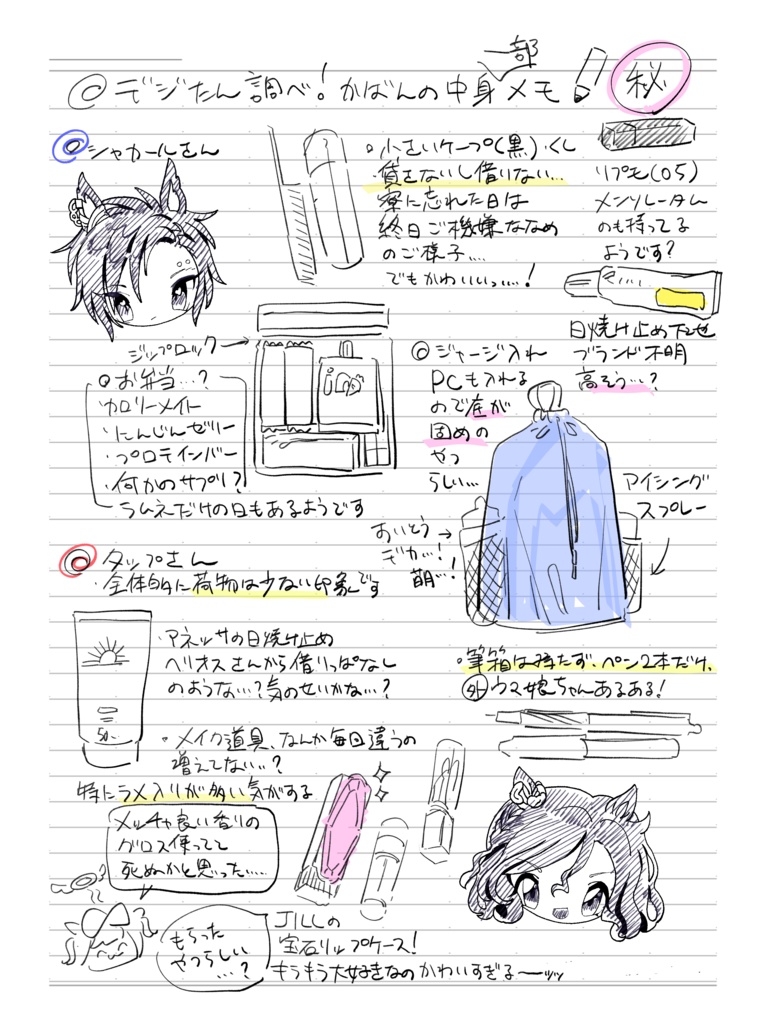 ◎デジたん調べ!かばんの中身一部メモ
秘
◎シャカールさん
・小さいケープ(黒)・くし
・貸さないし借りない…
寮に忘れた日は
終日ご機嫌ななめ
のご様子….
でもかわいいっ……!
リプモ(05)
メンソレータム
のも持ってる
ようです?
日焼け止め下地
ブランド不明
高そう…?
ジップロック→
◎お弁当…?
・カロリーメイト
・にんじんゼリー
・プロテインバー
・何かのサプリ?
ラムネだけの日もあるようです
◎ジャージ入れ
PCも入れる
ので底が
固めの
やつ
らしい…
アイシング
スプレー
すいとう→
デカ…!
萌…!
◎タップさん
・全体的に荷物は少ない印象です
・アネッサの日焼け止め
ヘリオスさんから借りっぱなし
のような…?気のせいかな…?
50
・筆箱は持たず、ペン2本だけ、
外ウマ娘ちゃんあるある!
・メイク道具、なんか毎回違うの
増えてない…?
特にラメ入りが多い気がする
メッチャ良い香りの
グロス使ってて
死ぬかと思った….
もらった
やつらしい
…?
JILLの
宝石リップケース!
キラキラ大好きなのかわいすぎるーッッ